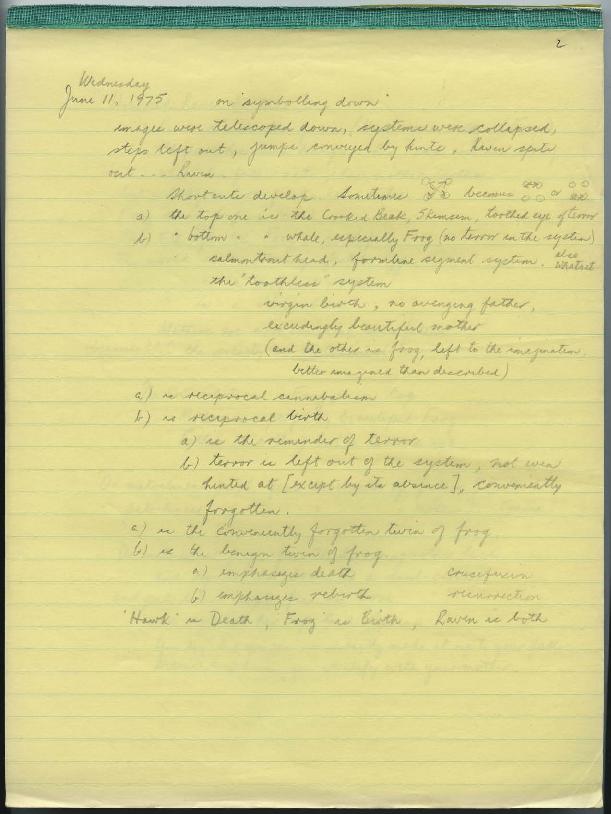 2
Wednesday
June 11, 1975 on "symbolling down"
images were telescoped down, systems were collapsed,
steps left out, jumps conveyed by hints. Raven spits
out... Raven.
Shortcuts develop. Sometimes becomes or
a) the top one is the Crooked Beak, Skemsem, toothed eye of terror
b) " bottom " " whale, especially Frog (no terror in the system)
salmontrout head, formline segment system. also whatnot
the "toothless" system
virgin birth, no avenging father,
exceedingly beautiful mother
(and the other is frog, left to the imagination,
better imagined than described)
a) is reciprocal cannibalism
b) is reciprocal birth
a) is the reminder of terror
b) terror is left out of the system, not even
hinted at [except by its absence], conveniently
forgotten.
a) is the conveniently forgotten twin of frog
b) is the benign twin of frog.
a) emphasizes death crucifixion
b) emphasizes rebirth resurrection
"Hawk" is Death, "Frog" is Birth, Raven is both